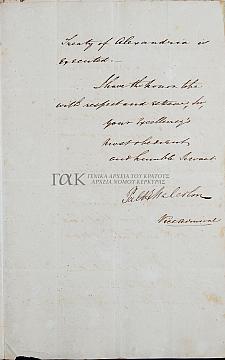 Treaty of Alexandria is
executed.—
I have the honor to be
with respect and esteem, Sir,
Your Excellency's
most obedient
and humble Servant
ΓΑΚ ΓΕΝΙΚΑ ΑΡΧΕΙΑ ΤΟΥ ΚΡΑΤΟΥΣ
ΑΡΧΕΙΑ ΝΟΜΟΥ ΚΕΡΚΥΡΑΣ
Malcolm
Vice Admiral